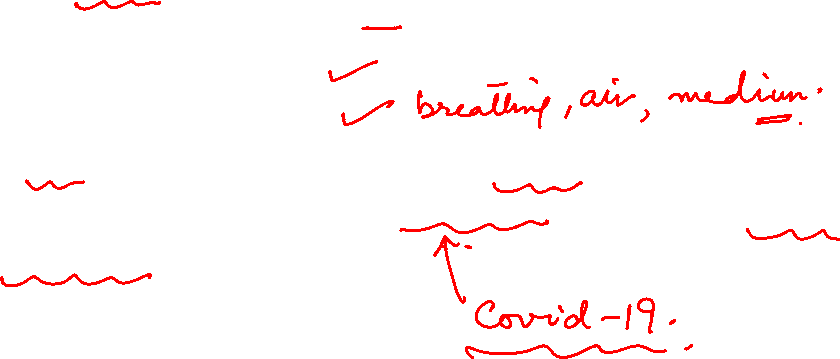 breathing, air, medium.
Covid-19.